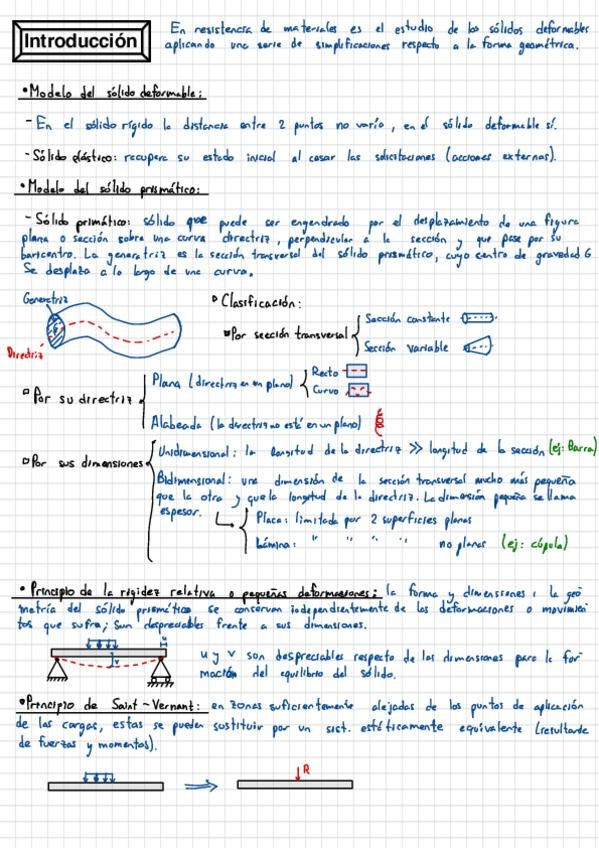 Introducción
En resistencia de materiales es el estudio de los sólidos deformables
aplicando una serie de simplificaciones respecto a la forma geométrica.
• Modelo del sólido deformable:
- En el sólido rígido la distancia entre 2 puntos no varía, en el sólido deformable sí.
- Sólido elástico: recupera su estado inicial al cesar las solicitaciones (acciones externas).
• Modelo del sólido prismático:
- Sólido primático: sólido que puede ser engendrado por el desplazamiento de una figura
plana o sección sobre una curva directriz, perpendicular a la sección y que pase por su
baricentro. La generatriz es la sección transversal del sólido prismático, cuyo centro de gravedad G
Se desplaza a lo largo de una curva.
Generatriz
Directriz
Clasificación:
Por sección transversal
Sección constante
Sección variable
Por su directriz
Plana (directriz en un plano)
Recto
Curvo
Alabeada (la directriz no está en un plano)
Por sus dimensiones
Unidimensional: la longitud de la directriz >> longitud de la sección (ej: Barra)
Bidimensional: una dimensión de la sección transversal mucho más pequeña
que la otra y que la longitud de la directriz. La dimensión pequeña se llama
espesor.
Placa: limitada por 2 superficies planas
Lámina: " " " " no planas (ej: cúpula)
• Principio de la rigidez relativa o pequeñas deformaciones: la forma y dimensiones i la geo
metría del sólido prismático se conservan independientemente de las deformaciones o movimien
tos que sufra; Sun despreciables frente a sus dimensiones.
u
v
u y v son despreciables respecto de las dimensiones para la for
mación del equilibrio del sólido.
• Principio de Saint-Vernant: en zonas suficientemente alejadas de los puntos de aplicación
de las cargas, estas se pueden sustituir por un sist. estéticamente equivalente (resultante
de fuerzas y momentos).
R